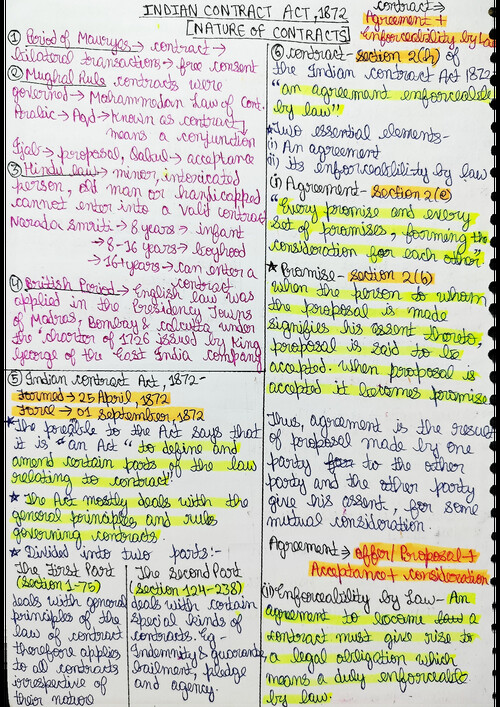 INDIAN CONTRACT ACT, 1872
[NATURE OF CONTRACTS]
① Period of Mauryas → contract →
bilateral transaction → free consent
② Mughal Rule contracts were
governed → Mohammedan Law of Cont.
Arabic → Aqd → known as contract
means a conjunction
Ijab → proposal, Qabul → acceptance
③ Hindu law → minor, intoxicated
person, old man or handicapped
cannot enter into a valid contract
Narada smriti → 8 years → infant
→ 8-16 years → boyhood
→ 16+years → can enter a
contract
④ British Period → English law was
applied in the Presidency Towns
of Madras, Bombay & Calcutta under
the charter of 1726 issued by King
George of the East India company
⑤ Indian contract Act, 1872-
Formed → 25 April, 1872
Force → 01 september, 1872
★ The preamble to the Act says that
it is "an Act " to define and
amend certain parts of the law
relating to contract"
★ The Act mostly deals with the
general principles and rules
governing contracts
★ Divided into two parts:-
The First Part
(section 1-75)
deals with general
principles of the
law of contract
therefore applies
to all contracts
irrespective of
their nature
The Second Part
(section 124-238)
deals with contain
special kinds of
contracts. Eg-
Indemnity & guarantee,
bailment, pledge
and agency.
contract →
Agreement +
enforceability by Law
⑥ contract- section 2(h) of
the Indian contract Act 1872
"an agreement enforceable
by law"
★ Two essential elements-
(i) An agreement
(ii) its enforceability by law
(i) Agreement- section 2(e)
"Every promise and every
set of promises, forming the
consideration for each other"
★ Promise- section 2(b)
when the person to whom
the proposal is made
signifies his assent thereto,
proposal is said to be
accepted. When proposal is
accepted it becomes promise
Thus, agreement is the result
of proposal made by one
party to the other
party and the other party
give his assent, for some
mutual consideration.
Agreement → offer/Proposal +
Acceptance + consideration
(ii) Enforceability by Law- An
agreement to become a
contract must give rise to
a legal obligation which
means a duly enforceable
by law.